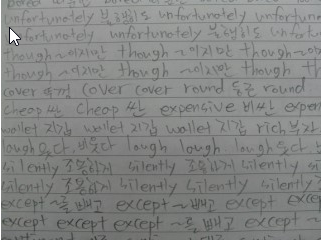 unfortunately 불행히도 unfortunately unfortun
unfortunately unfortunately 불행히도 unfortu
though ~이지만 though ~이지만 though ~
though ~이지만 though ~이지만 though th
cover 덮개 cover cover round 둥근 round
cheap 싼 cheap 싼 expensive 비싼 expen
wallet 지갑 wallet 지갑 wallet 지갑 rich 부자
laugh 웃다, 비웃다 laugh laugh laugh 웃다
silently 조용하게 silently 조용하게 silently si
silently 조용하게 silently silently silently
except ~를 빼고 except ~빼고 except exce
except except except ~를 빼고 except ~